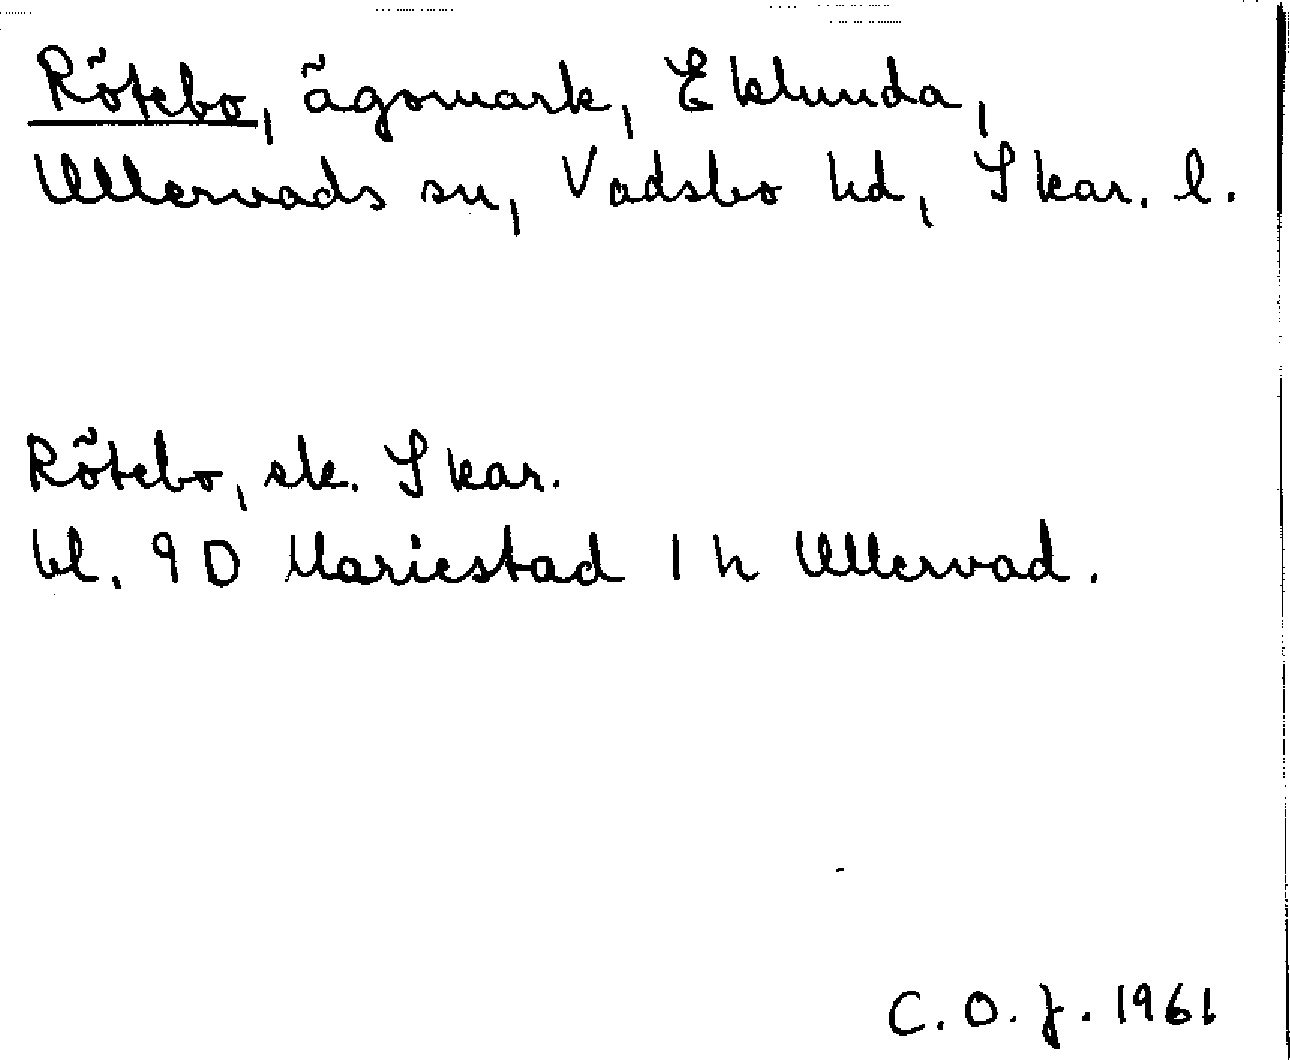 Rötebo, ägomark, Eklunda,
Ullervads sn, Vadsbo hd, Skar. l.
Rötebo, ek. Skar.
bl. 9 D Mariestad 1 h Ullervad.
C. O. J. 1961